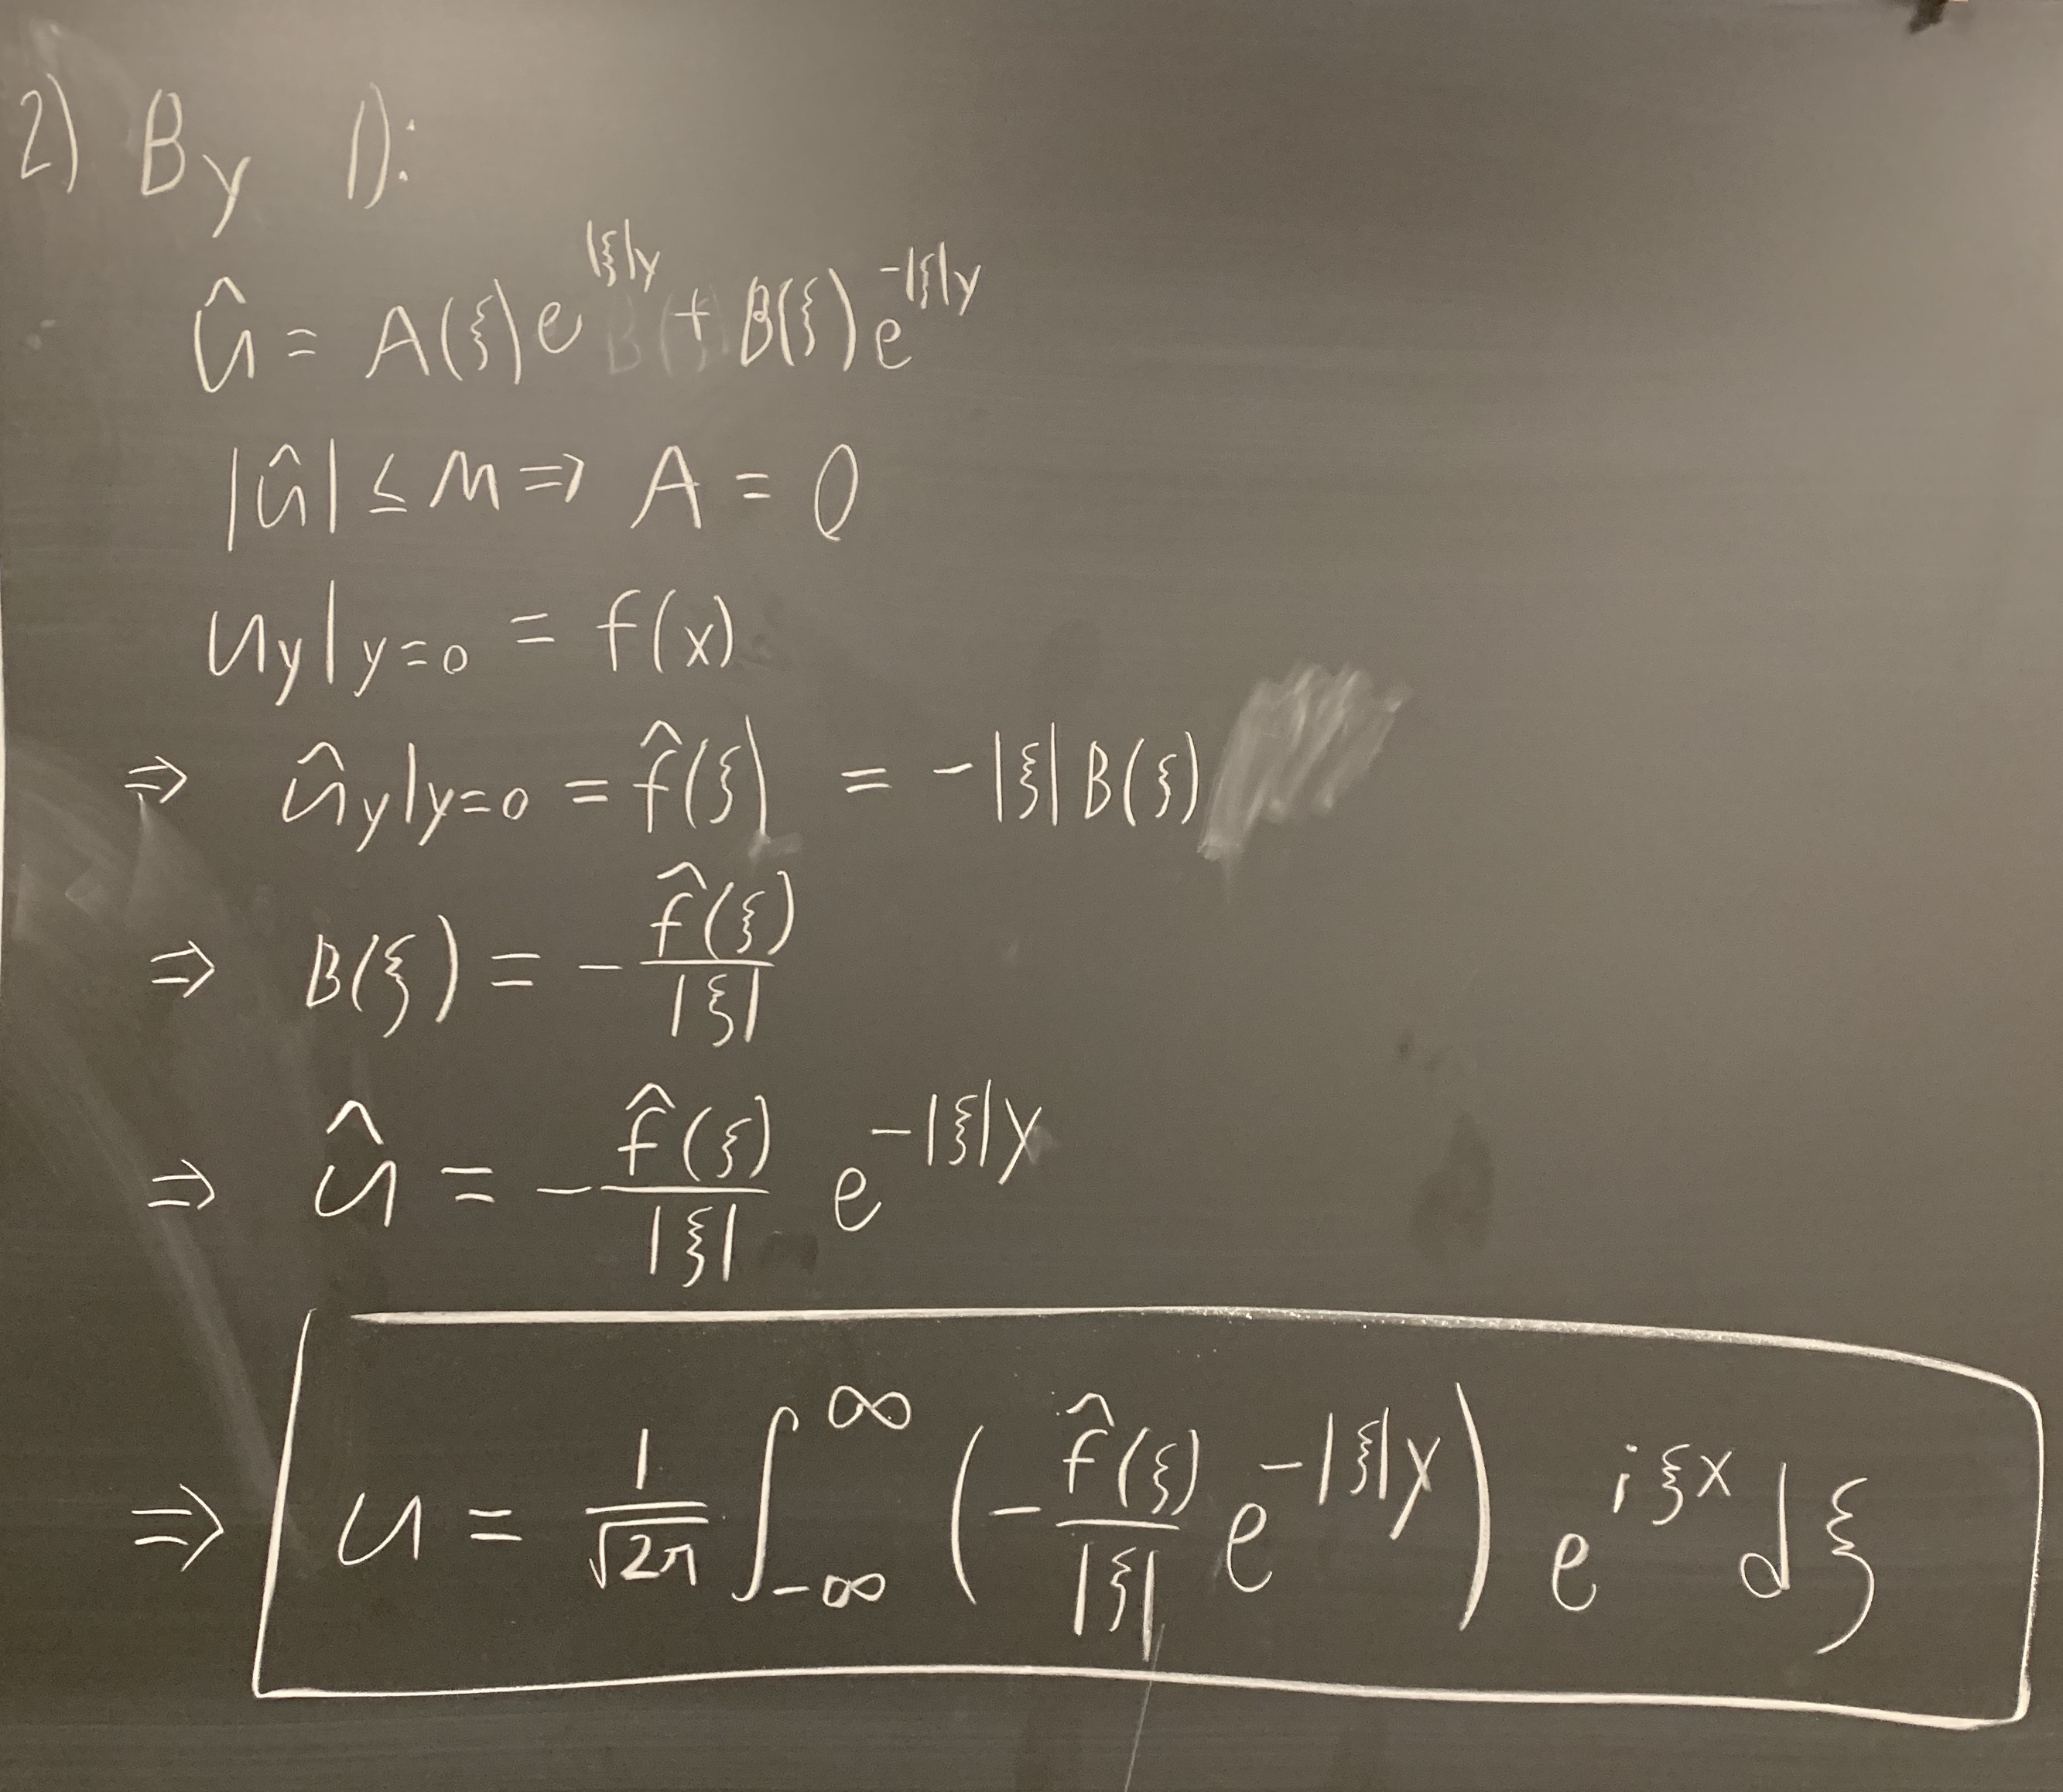 2) By 1):
û = A(ξ)e^{|ξ|y} + B(ξ)e^{-|ξ|y}
|û| ≤ M ⇒ A = 0
u_y|_{y=0} = f(x)
⇒ û_y|_{y=0} = f̂(ξ) = -|ξ|B(ξ)
⇒ B(ξ) = - f̂(ξ)/|ξ|
⇒ û = - f̂(ξ)/|ξ| e^{-|ξ|y}
⇒ u = 1/√2π ∫_{-∞}^{∞} (- f̂(ξ)/|ξ| e^{-|ξ|y}) e^{iξx} dξ